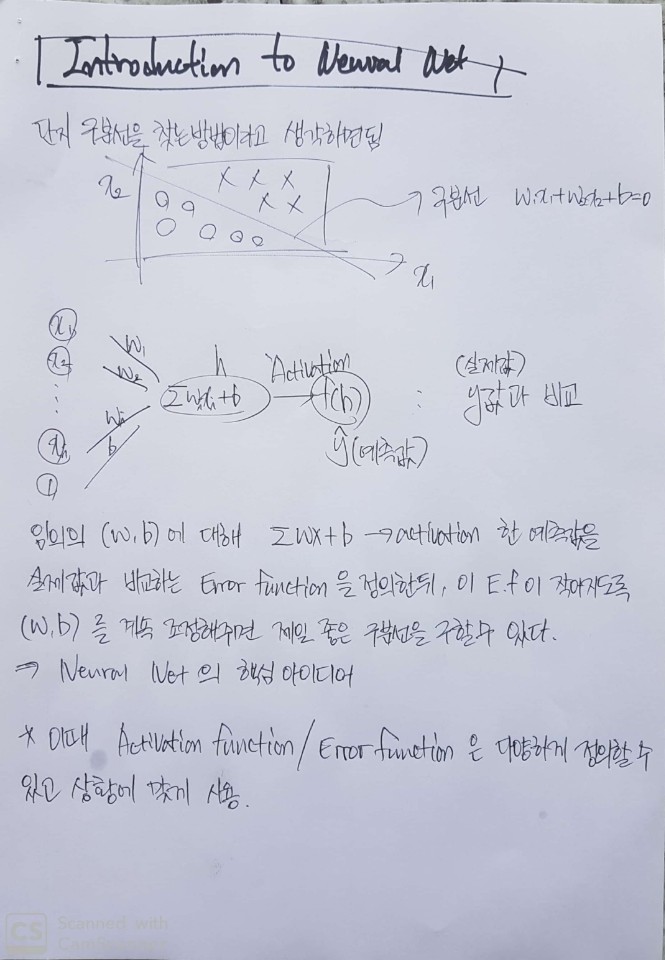 Introduction to Neural Net
단지 구분선을 찾는방법이라고 생각하면됨
x₂
x x x
x x
구분선 w₁x₁+w₂x₂+b=0
x₁
x₁
x₂
⋮
xᵢ
1
w₁
w₂
wᵢ
b
h
Σwᵢxᵢ+b
Activation
f(h)
ŷ(예측값)
:
(실제값)
y값과 비교
임의의 (w,b)에 대해 Σwx+b → activation 한 예측값을
실제값과 비교하는 Error function을 정의한뒤, 이 E.f이 작아지도록
(w,b)를 계속 조정해주면 제일 좋은 구분선을 구할수 있다.
⇒ Neural Net의 핵심아이디어
* 이때 Activation function/Error function은 다양하게 정의할수
있고 상황에 맞게 사용.
CS Scanned with
CamScanner